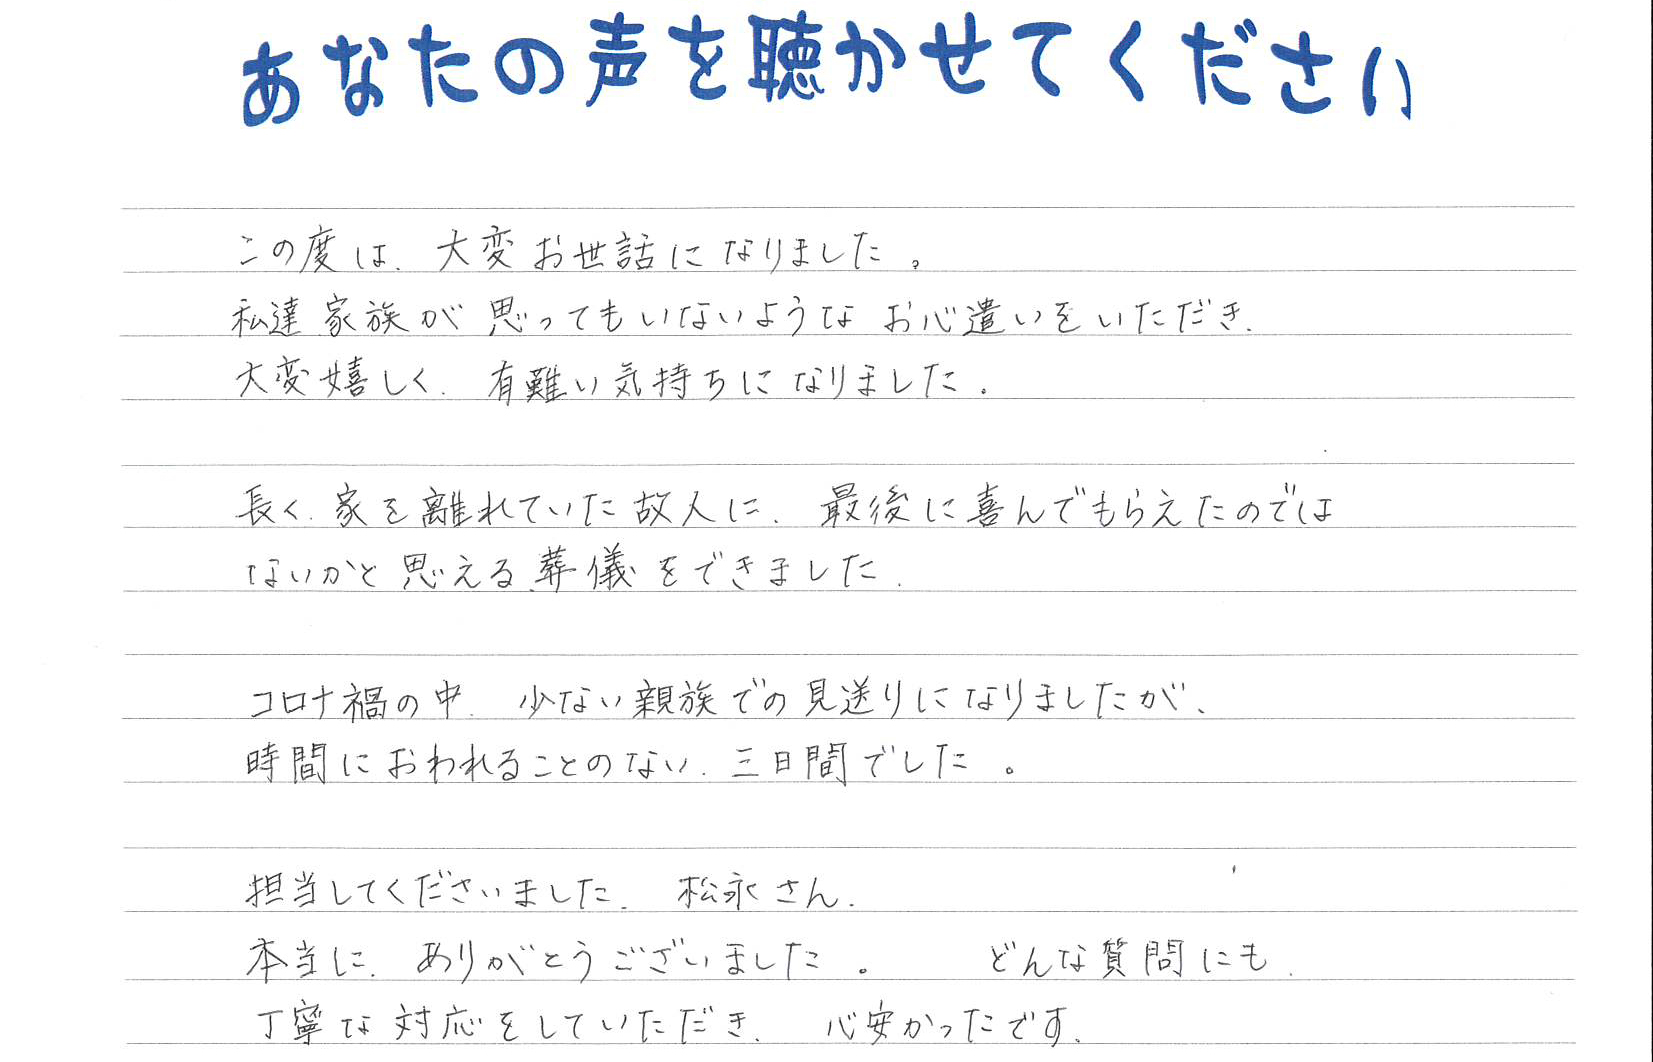 あなたの声を聴かせてください
この度は、大変お世話になりました。
私達家族が思ってもいないようなお心遣いをいただき、
大変嬉しく、有難い気持ちになりました。
長く、家を離れていた故人に、最後に喜んでもらえたのでは
ないかと思える葬儀をできました。
コロナ禍の中、少ない親族での見送りになりましたが、
時間におわれることのない、三日間でした。
担当してくださいました、松永さん、
本当に、ありがとうございました。 どんな質問にも、
丁寧な対応をしていただき、心安かったです。